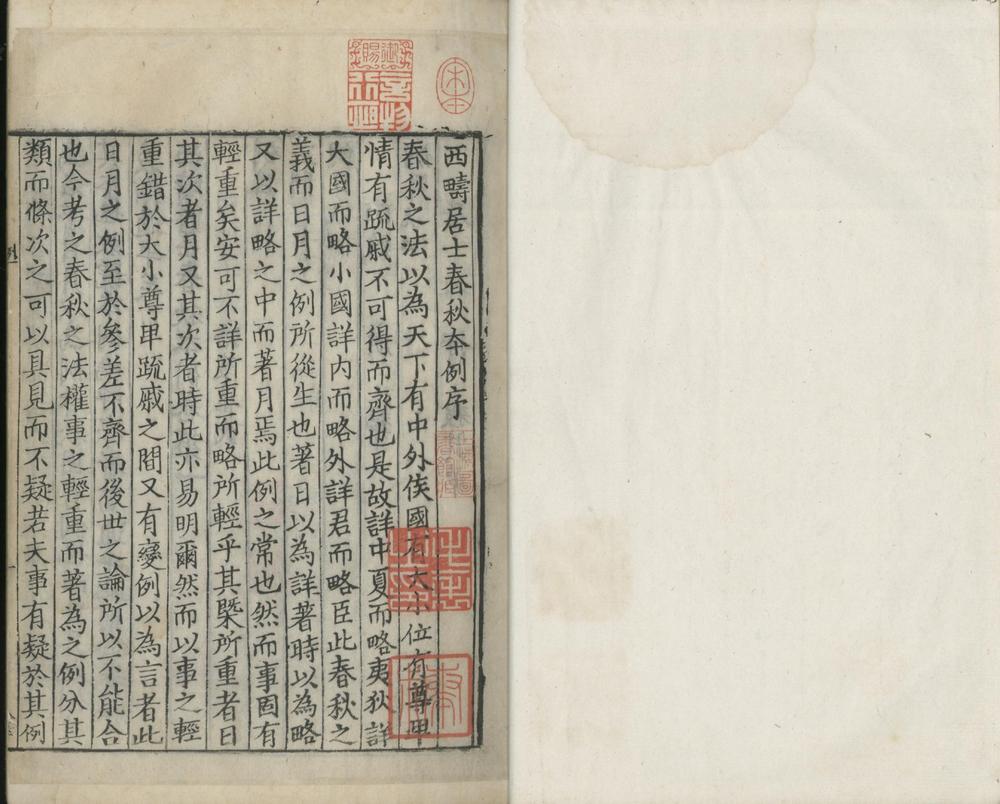 西疇居士春秋本例序
春秋之法以為天下有中外侯國有大小位有尊卑
情有疏戚不可得而齊也是故詳中夏而略夷狄詳
大國而略小國詳內而略外詳君而略臣此春秋之
義而日月之例所從生也著日以為詳著時以為略
又以詳略之中而著月焉此例之常也然而事固有
輕重矣安可不詳所重而略所輕乎其槩所重者日
其次者月又其次者時此亦易明爾然而以事之輕
重錯於大小尊卑疏戚之閒又有變例以為言者此
日月之例至於參差不齊而後世之論所以不能合
也今考之春秋之法權事之輕重而著為之例分其
類而條次之可以具見而不疑若夫事有疑於其例